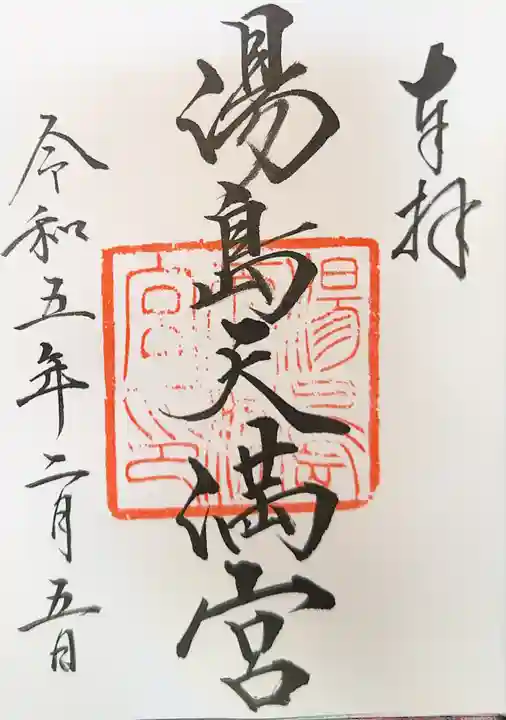 奉拝
湯島天満宮
令和五年二月五日